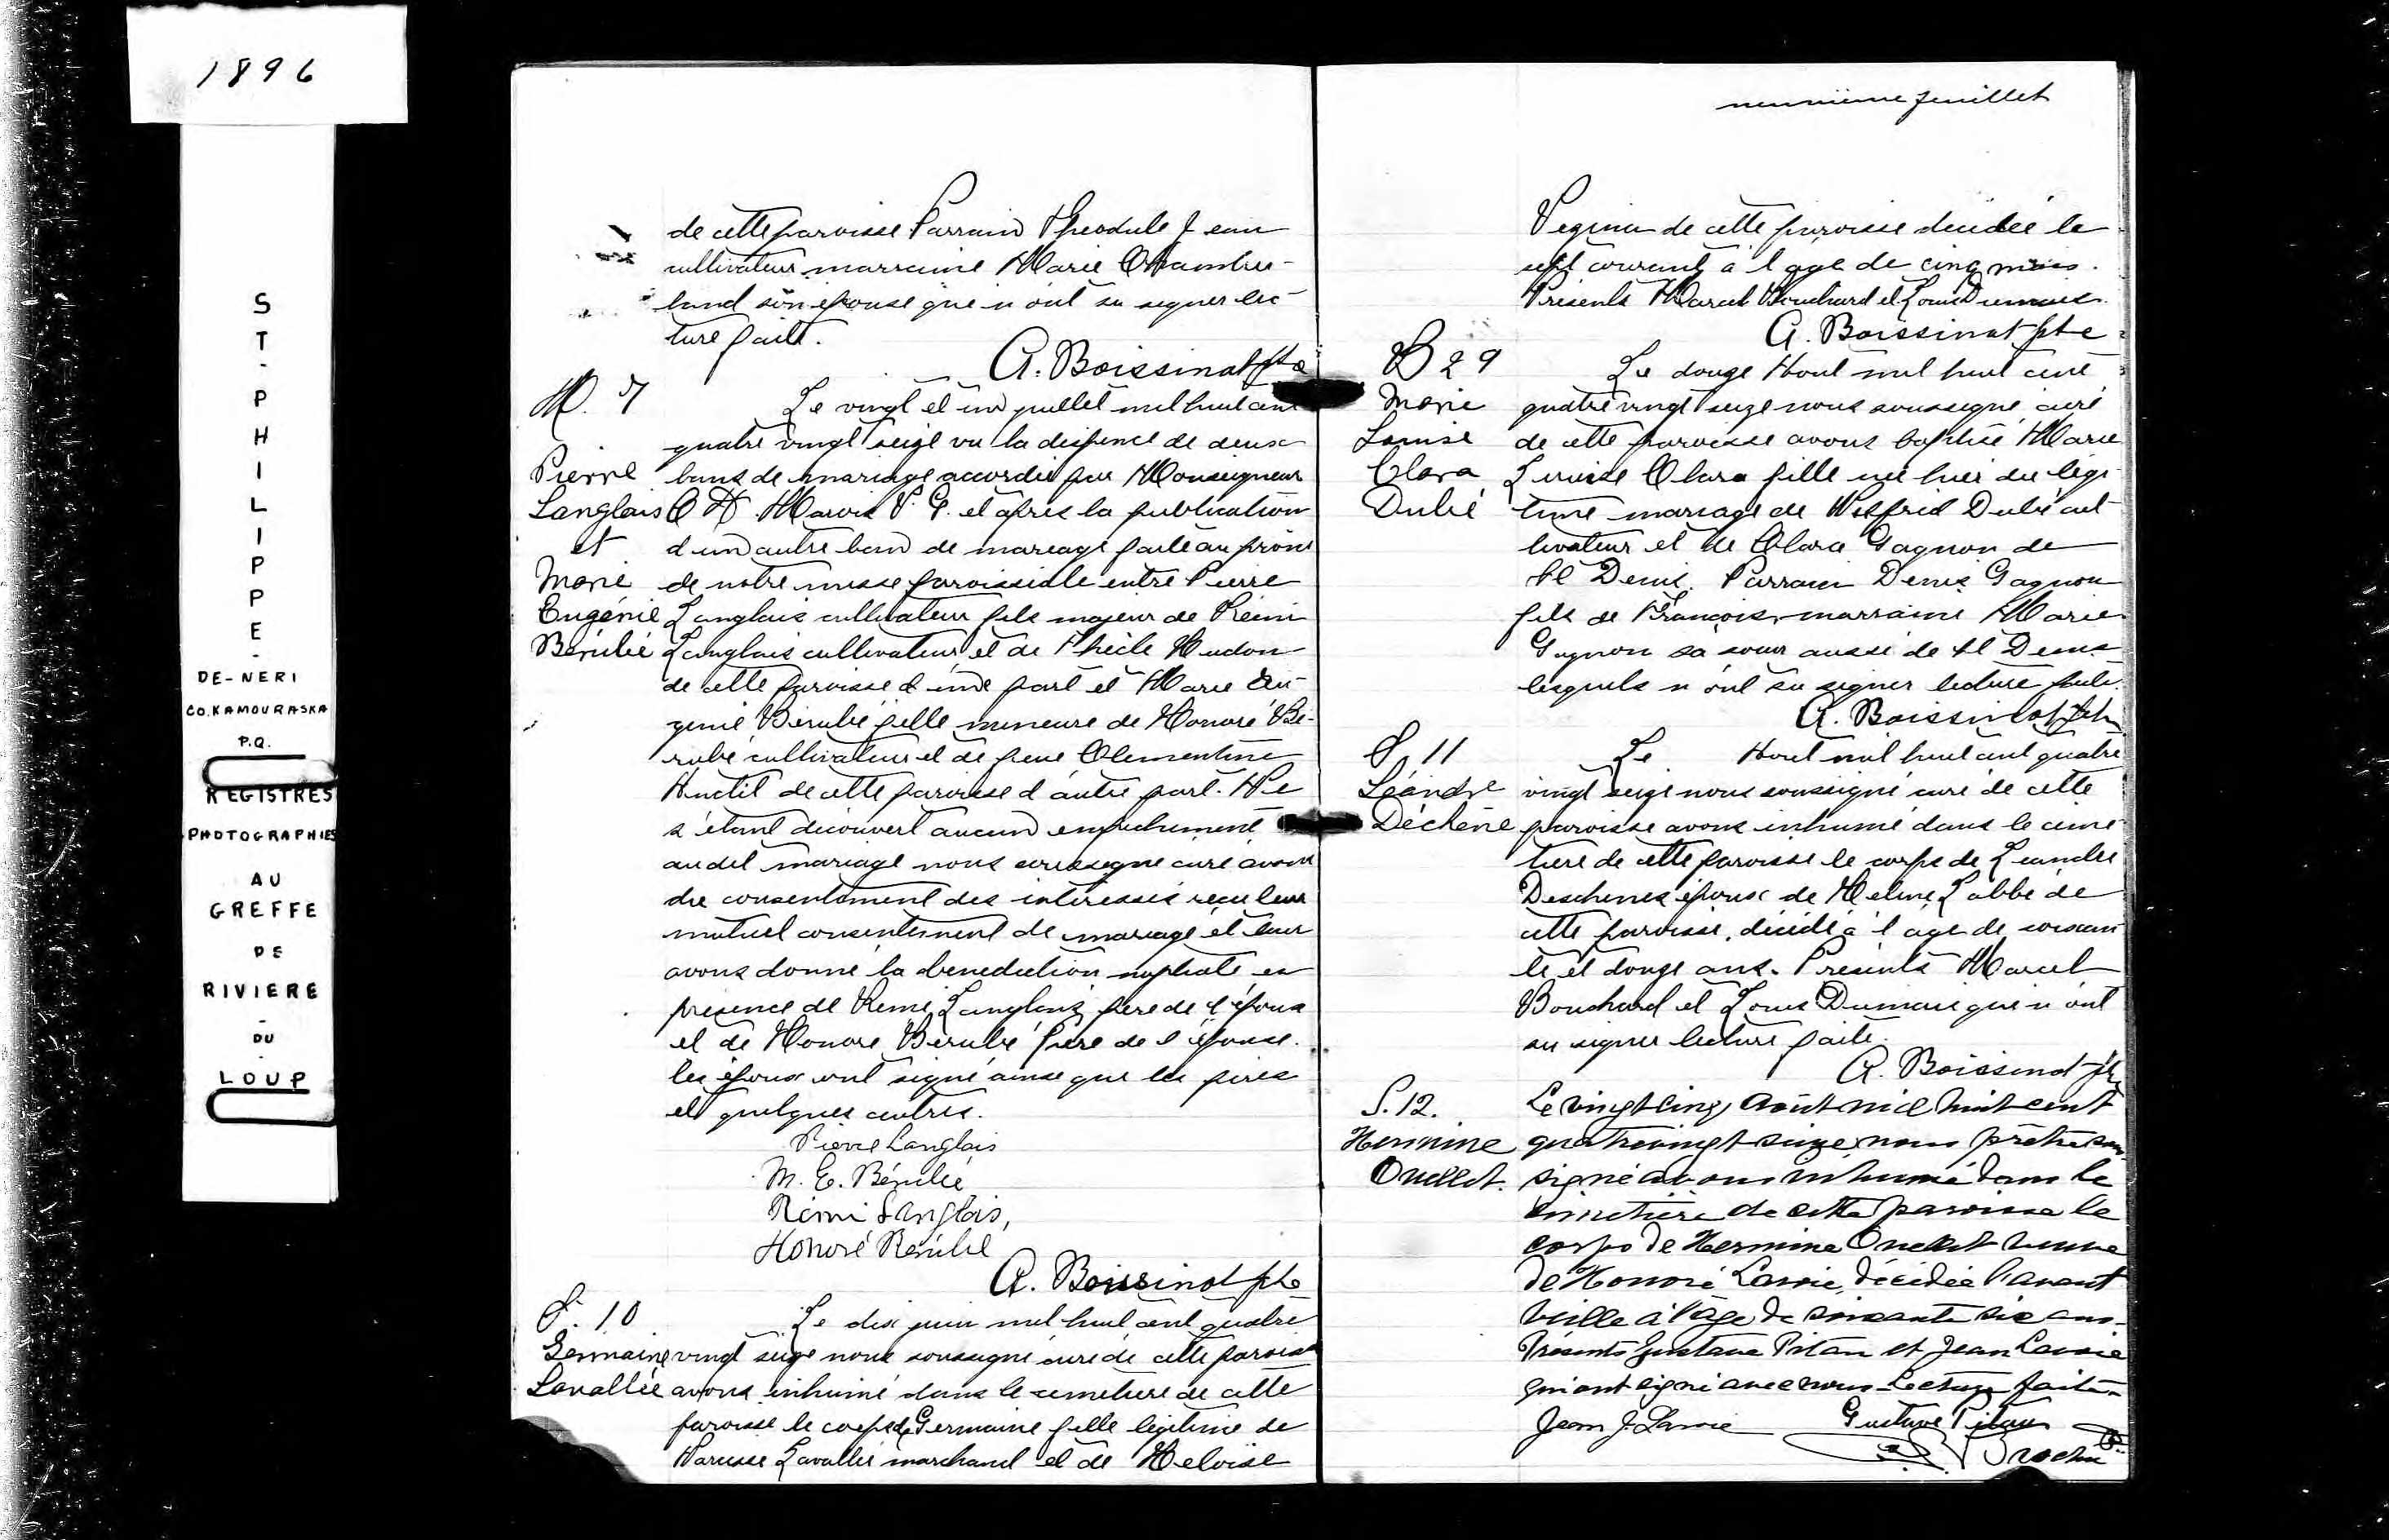 1896
ST-PHILIPPE-
DE-NERI
CO. KAMOURASKA
P.Q.
REGISTRES
PHOTOGRAPHIES
AU
GREFFE
DE
RIVIERE
-
DU
-
LOUP
de cette paroisse Parrain Theodule Jean
cultivateur marraine Marie Chamber-
land son épouse qui n'ont su signer lec-
ture faite.
A. Boissinot ptre
M. 7
Pierre
Langlais
et
Marie
Eugénie
Bérubé
Le vingt et un juillet mil huit cent
quatre vingt seize vu la dispense de deux
bans de mariage accordée par Monseigneur
C A Marois V. G. et après la publication
d'un autre ban de mariage faite au prône
de notre messe paroissiale entre Pierre
Langlais cultivateur fils majeur de Rémi
Langlais cultivateur et de Thècle Hudon
de cette paroisse d'une part et Marie Eu-
génie Bérubé fille mineure de Honoré Bé-
rubé cultivateur et de feue Clementine
de cette paroisse d'autre part. Ne
s'étant découvert aucun empêchement
au dit mariage nous soussigné curé avons
du consentement des intéressés reçu leur
mutuel consentement de mariage et leur
avons donné la bénédiction nuptiale en
présence de Rémi Langlais père de l'époux
et de Honoré Bérubé père de l'épouse.
les époux ont signé ainsi que les pères
et quelques autres.
Pierre Langlais
M. E. Bérubé
Rémi Langlais,
Honoré Bérubé
A. Boissinot ptre
S. 10
Germaine
Lavallée
Le dix juin mil huit cent quatre
vingt seize nous soussigné curé de cette paroisse
avons inhumé dans le cimetière de cette
paroisse le corps de Germaine fille légitime de
Narcisse Lavallée marchand et de Héloïse
neuvième feuillet
de cette paroisse décédée le
sept courant à l'age de cinq mois.
Présents Marcel Bouchard et Louis Dumais.
A. Boissinot ptre
B 29
Marie
Louise
Clara
Dubé
Le douze Aout mil huit cent
quatre vingt seize nous soussigné curé
de cette paroisse avons baptisé Marie
Louise Clara fille née hier du légi-
time mariage de Wilfrid Dubé cul
tivateur et de Clara Gagnon de
St Denis. Parrain Denis Gagnon
fils de François marraine Marie
Gagnon sa soeur aussi de St Denis
lesquels n'ont su signer lecture faite.
A. Boissinot ptre
S. 11
Léandre
Déchène
Le Aout mil huit cent quatre
vingt seize nous soussigné curé de cette
paroisse avons inhumé dans le cime
tiere de cette paroisse le corps de Leandre
Deschenes époux de Labbé de
cette paroisse, décédé à l'âge de soixan
te et douze ans. Presents Marcel
Bouchard et Louis Dumais qui n'ont
su signer lecture faite.
A. Boissinot ptre
S. 12.
Hermine
Ouellet.
Le vingt cinq Août mil huit cent
quatre vingt seize nous prêtre sous-
signé avons inhumé dans le
cimetière de cette paroisse le
corps de Hermine Ouellet veuve
de Honoré Lavoie, décédée l'avant
veille à l'âge de soixante six ans.
Présents Gustave Pitau et Jean Lavoie
qui ont signé avec nous. Lecture faite.
Jean J. Lavoie Gustave Pitau